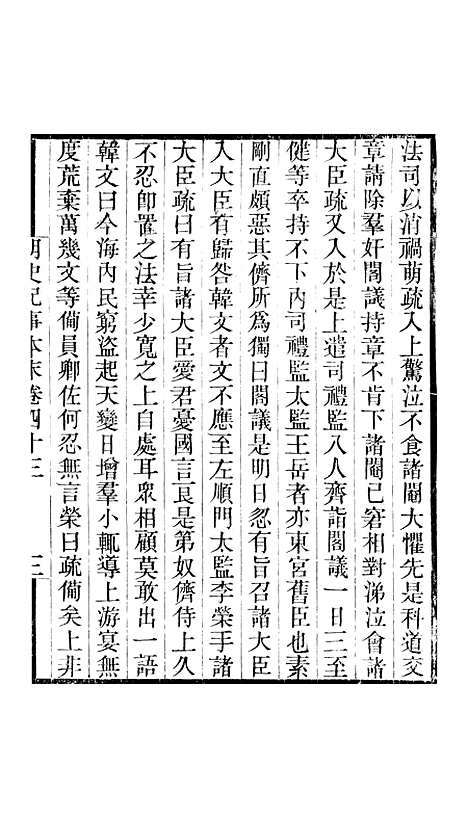 法司以消禍萌疏入上驚泣不食諸閹大懼先是科道交
章請除羣奸閣議持章不肯下諸閹已窘相對涕泣會諸
大臣疏又入於是上遣司禮監八人齊詣閣議一日三至
健等卒持不下內司禮監太監王岳者亦東宮舊臣也素
剛直頗惡其儕所爲獨曰閣議是明日忽有旨召諸大臣
入大臣有歸咎韓文者文不應至左順門太監李榮手諸
大臣疏曰有旨諸大臣愛君憂國言良是第奴儕侍上久
不忍卽置之法幸少寬之上自處耳衆相顧莫敢出一語
韓文曰今海內民窮盜起天變日增羣小輒導上游宴無
度荒棄萬幾文等僃員卿佐何忍無言榮曰疏僃矣上非
明史紀事本末卷四十三 三